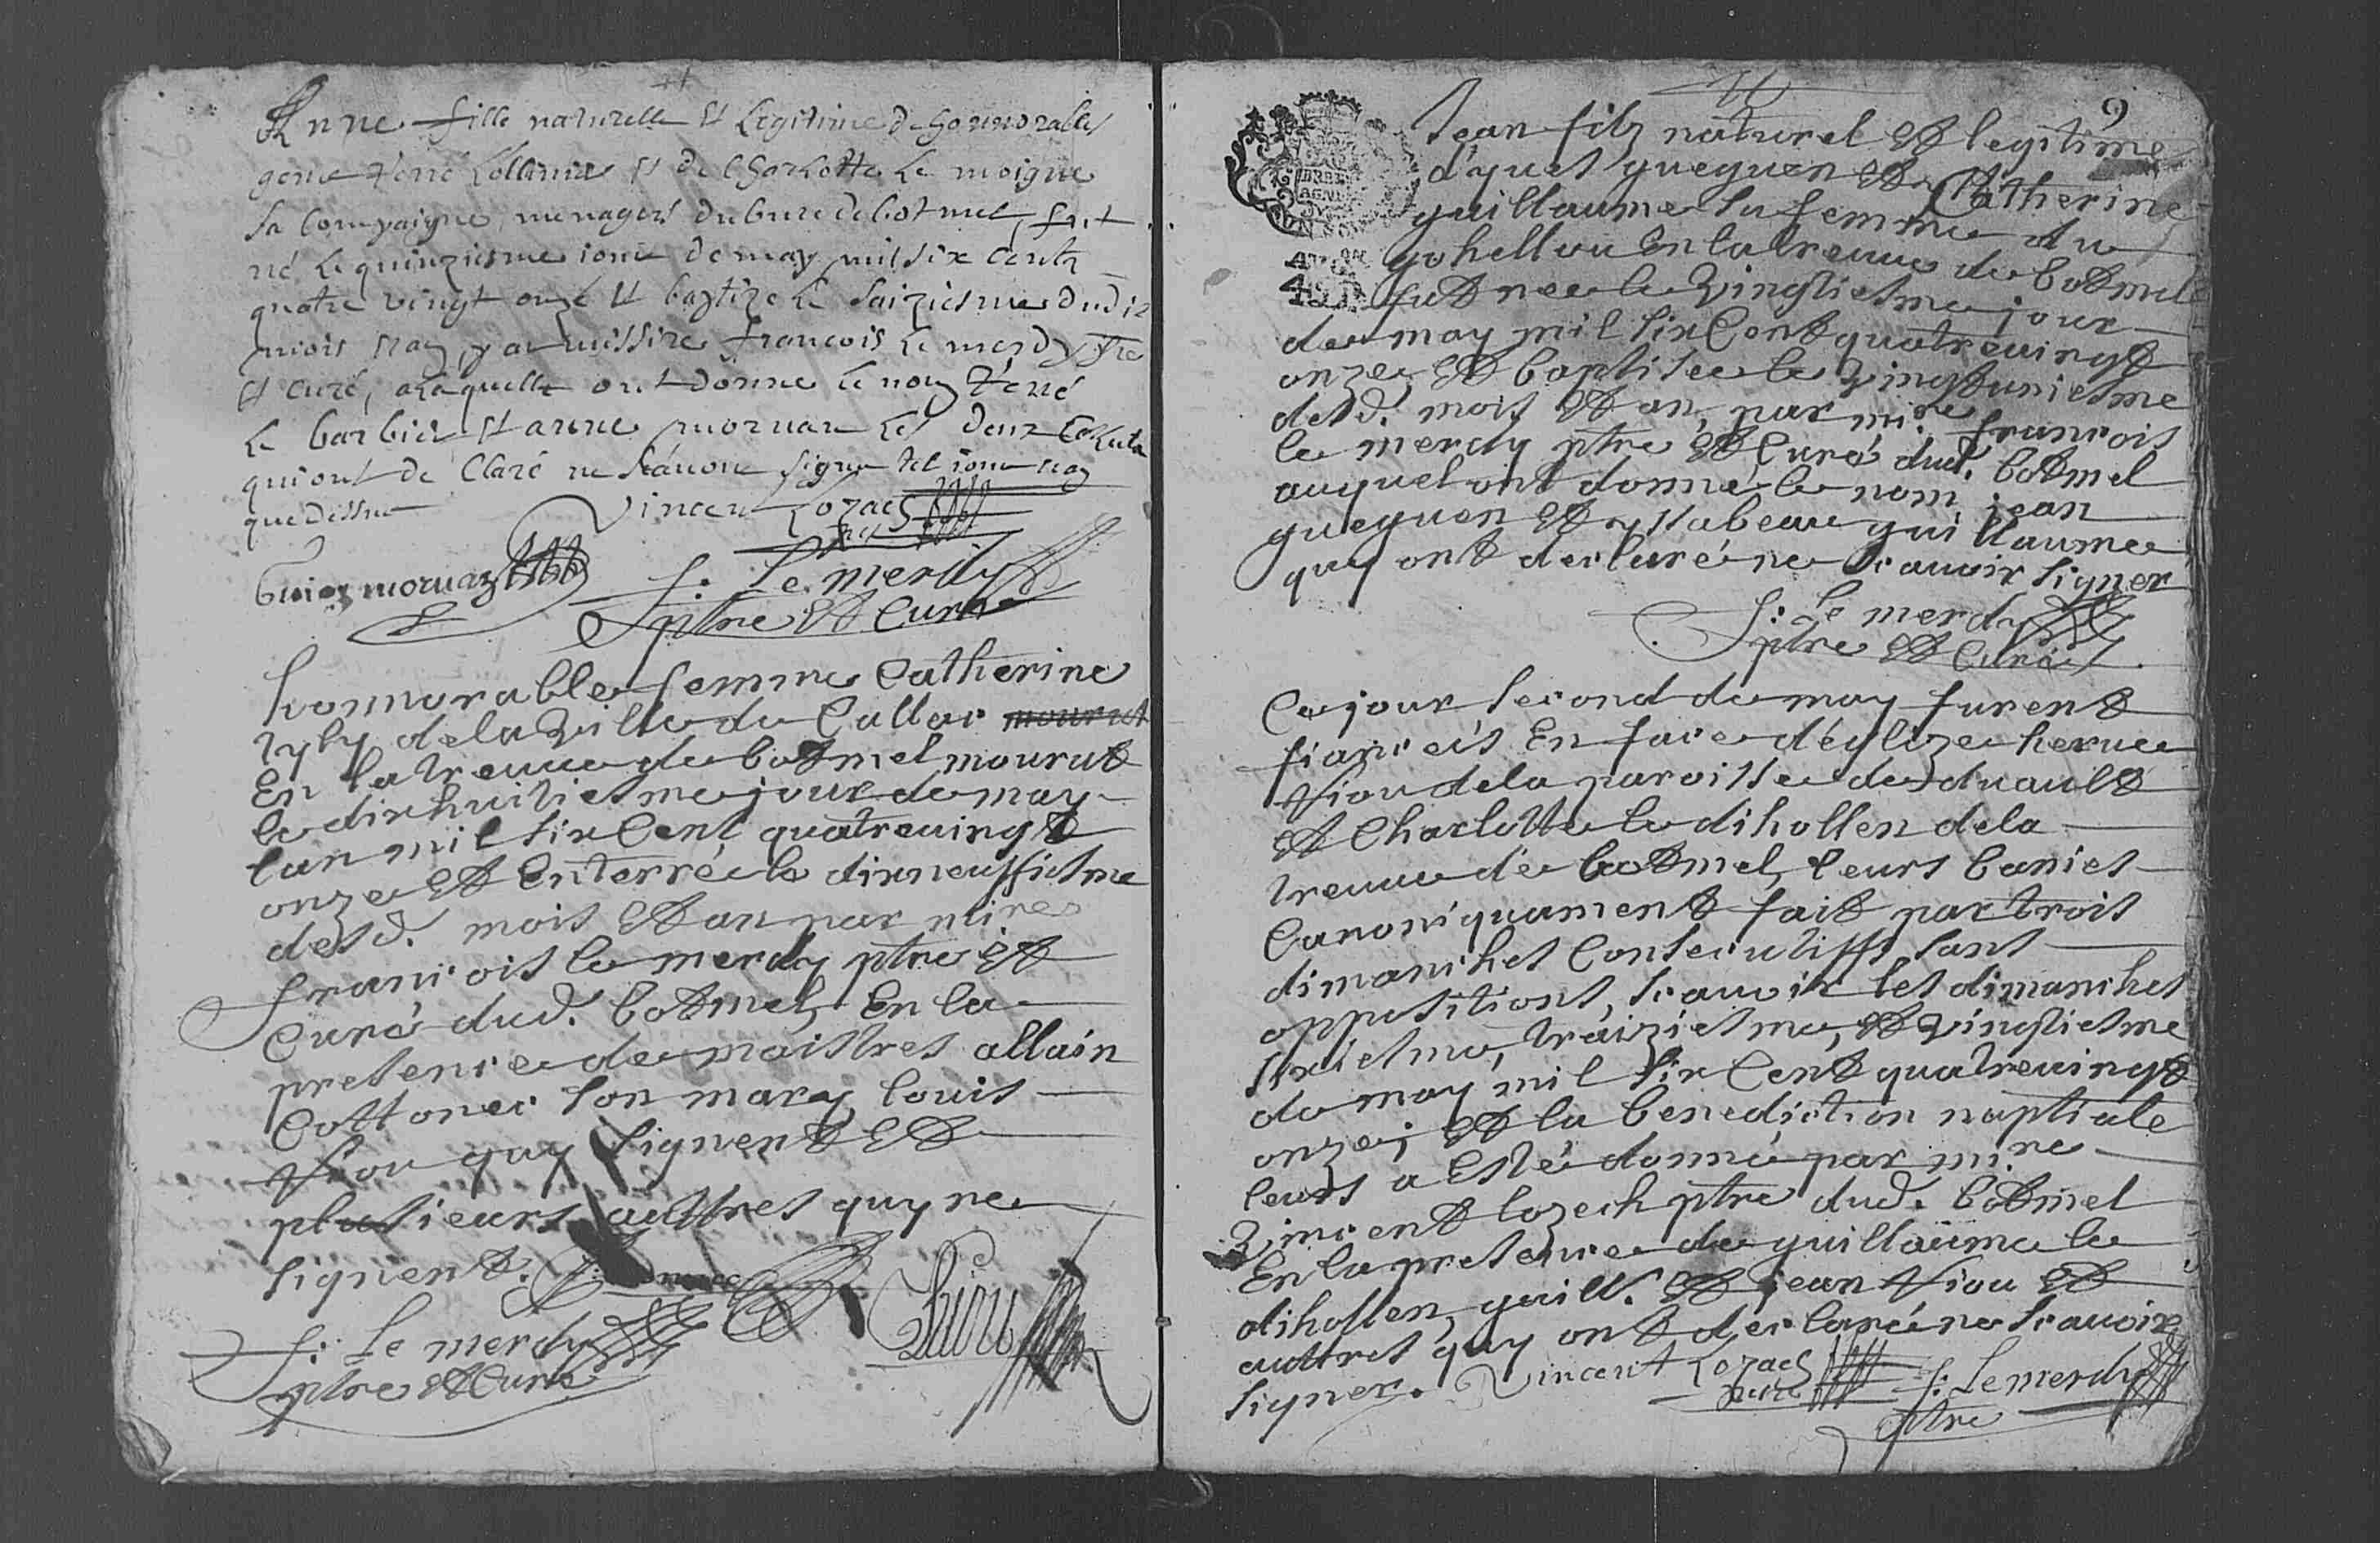 Anne fille naturelle et Legitime de honnorables
gens Renné Lollivier et de Charlotte Le moigne
sa Compaigne menagers du bure de botmel, fut
né le quinziesme jour de may mil six Centz
quatre vingt onze et baptize le saiziesme dudit
mois et an par missire francois Le merdy ptre
et curé, a laquelle ont donne le nom Renné
Le barbier et anne morvan Les deux
qui ont de Claré ne scavoir signe tel jour et an
que dessur Vincent Lozach
ptre
morvan
f: Le merdy
ptre et Curé
honnorable femme Catherine
de la ville de Callac mourut
En la treuue de botmel mourut
le dixhuitiesme jour de may
lan mil six Cent quatreuingt
onze et Enterrée le dixneuffiesme
desd. mois et an par mire
francois le merdy ptre et
Curé dud. botmel, En la
presence de maistres allain
Cottonec son mary, louis
Riou quy signent et
plusieurs aultres quy ne
signent.
Riou
f: Le merdy
ptre et Curé
9
Jean filz naturel et legitime
d'yues gueguen et Catherine
guillaume sa femme du
gohellou En la treuue de botmel
fut nee le vingtiesme jour
de may mil six Cent quatreuingt
onze, et baptisee le vingtuniesme
desd. mois et an par mire francois
le merdy ptre et Curé dud. botmel
auquel ont donné le nom jean
gueguen et ysabeau guillaume
quy ont declaré ne scauoir signer
f: Le merdy
ptre et Curé
Ce jour second de may furent
fiancés En face d'églize herue
Riou de la paroisse de duault
et Charlotte le dihollen de la
treuue de botmel, leurs banies
Canoniquament fait par trois
dimanches Consecutiffs sans
oppositions, scauoir les dimanches
sixiesme, traiziesme, et vingtiesme
de may mil six Cent quatreuingt
onze; et la benediction naptiale
leurs a esté donné par mire
vincent lozech ptre dud. botmel
En la presence de guillaume le
dihollen, guill. et jean Riou et
aultres quy ont declaré ne scauoir
signer. Vincent Lozach f: Le merdy
ptre
ptre